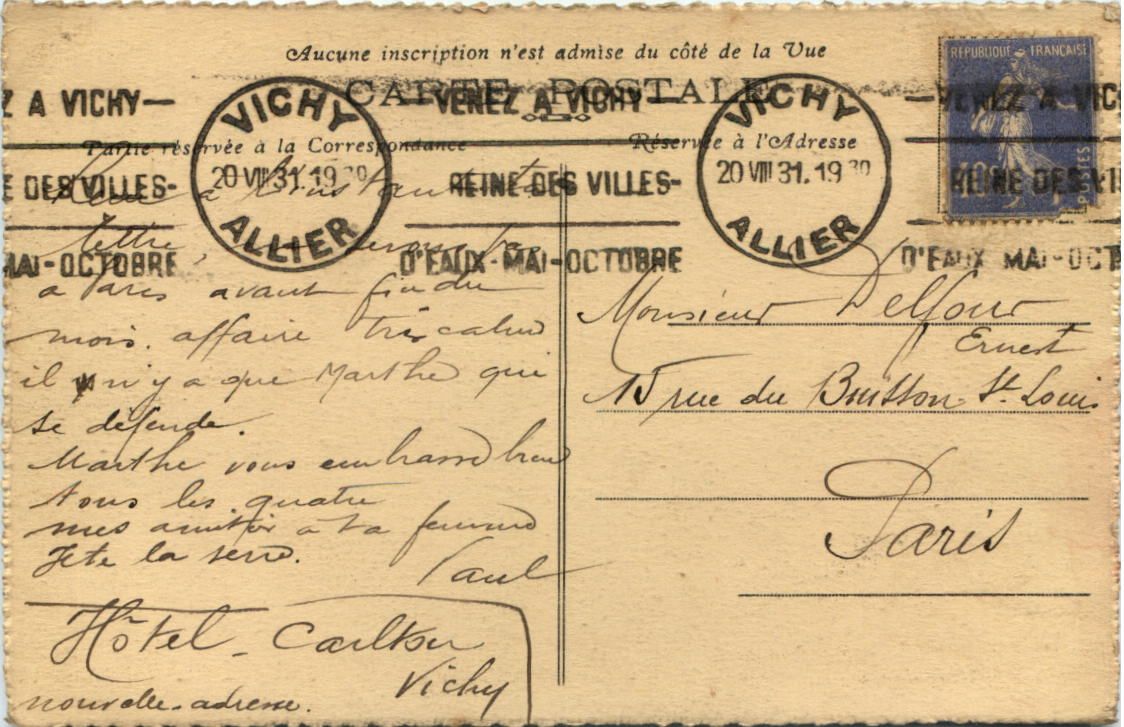 Aucune inscription n'est admise du côté de la Vue
CARTE POSTALE
Z A VICHY— VICHY VENEZ A VICHY— VICHY —VENEZ A VIC
Partie réservée à la Correspondance
Réservée à l'Adresse
DES VILLES- 20 VIII 31. 19 30 REINE DES VILLES- 20 VIII 31. 19 30 REINE DES VI
MAI-OCTOBRE ALLIER D'EAUX-MAI-OCTOBRE ALLIER D'EAUX MAI-OCT
REPUBLIQUE FRANCAISE
POSTES
à l'instant ta
lettre,
a Paris avant fin du
mois. affaire très calme
il n'y a que Marthe qui
se défende.
Marthe vous embrasse bien
tous les quatre
mes amitiés a ta femme
Je te la serre.
Paul
Hôtel - Carlton
Vichy
nouvelle adresse.
Monsieur Delfour
Ernest
15 rue du Buisson St. Louis
Paris